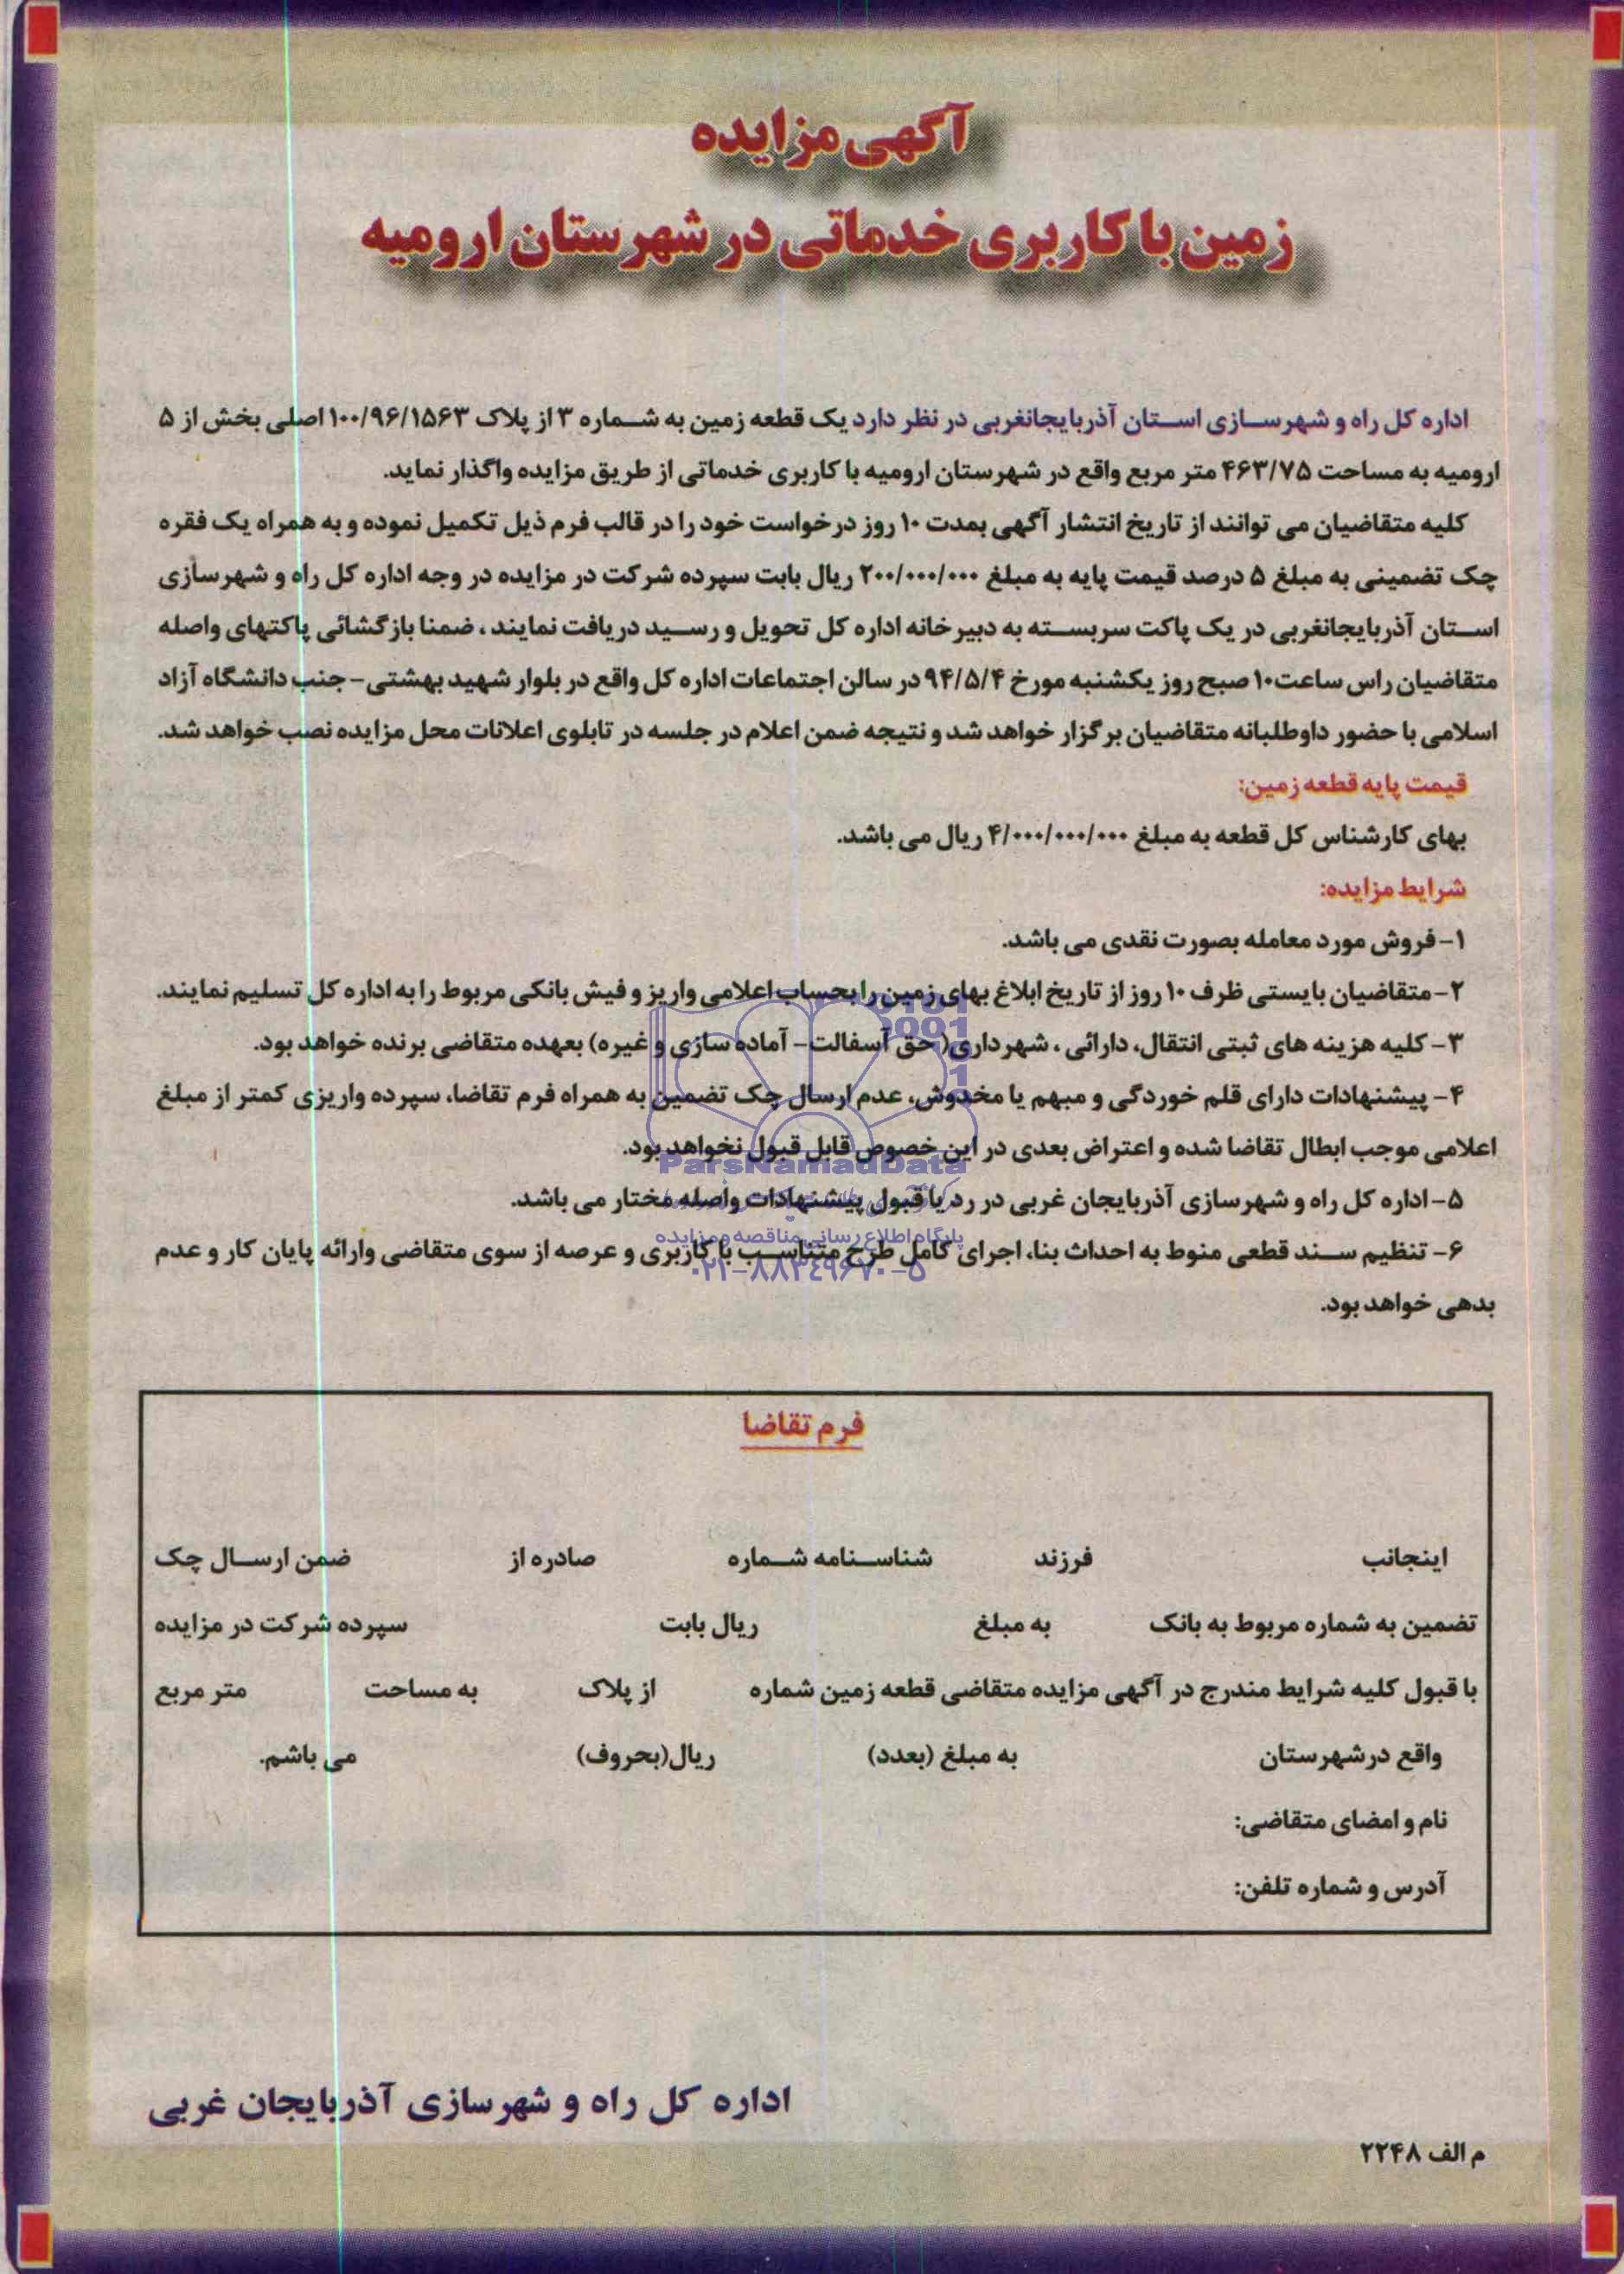 آگهی مزایده
زمین با کاربری خدماتی در شهرستان ارومیه
اداره کل راه و شهرسازی استان آذربایجانغربی در نظر دارد یک قطعه زمین به شماره ۳ از پلاک ۱۰۰/۹۶/۱۵۶۳ اصلی بخش از ۵
ارومیه به مساحت ۴۶۳/۷۵ متر مربع واقع در شهرستان ارومیه با کاربری خدماتی از طریق مزایده واگذار نماید.
کلیه متقاضیان می توانند از تاریخ انتشار آگهی بمدت ۱۰ روز درخواست خود را در قالب فرم ذیل تکمیل نموده و به همراه یک فقره
چک تضمینی به مبلغ ۵ درصد قیمت پایه به مبلغ ۲۰۰/۰۰۰/۰۰۰ ریال بابت سپرده شرکت در مزایده در وجه اداره کل راه و شهرسازی
استان آذربایجانغربی در یک پاکت سربسته به دبیرخانه اداره کل تحویل و رسید دریافت نمایند ، ضمنا بازگشائی پاکتهای واصله
متقاضیان راس ساعت۱۰ صبح روز یکشنبه مورخ ۹۴/۵/۴ در سالن اجتماعات اداره کل واقع در بلوار شهید بهشتی- جنب دانشگاه آزاد
اسلامی با حضور داوطلبانه متقاضیان برگزار خواهد شد و نتیجه ضمن اعلام در جلسه در تابلوی اعلانات محل مزایده نصب خواهد شد.
قیمت پایه قطعه زمین:
بهای کارشناس کل قطعه به مبلغ ۴/۰۰۰/۰۰۰/۰۰۰ ریال می باشد.
شرایط مزایده:
۱- فروش مورد معامله بصورت نقدی می باشد.
۲- متقاضیان بایستی ظرف ۱۰ روز از تاریخ ابلاغ بهای زمین را بحساب اعلامی واریز و فیش بانکی مربوط را به اداره کل تسلیم نمایند.
۳- کلیه هزینه های ثبتی انتقال، دارائی ، شهرداری( حق آسفالت- آماده سازی و غیره) بعهده متقاضی برنده خواهد بود.
۴- پیشنهادات دارای قلم خوردگی و مبهم یا مخدوش، عدم ارسال چک تضمین به همراه فرم تقاضا، سپرده واریزی کمتر از مبلغ
اعلامی موجب ابطال تقاضا شده و اعتراض بعدی در این خصوص قابل قبول نخواهد بود.
ParsNamadData
۵- اداره کل راه و شهرسازی آذربایجان غربی در رد یا قبول پیشنهادات واصله مختار می باشد.
پایگاه اطلاع رسانی مناقصه و مزایده
۶- تنظیم سند قطعی منوط به احداث بنا، اجرای کامل طرح متناسب با کاربری و عرصه از سوی متقاضی وارائه پایان کار و عدم
۰۲۱-۸۸۳۴۹۶۷۰-۵
بدهی خواهد بود.
فرم تقاضا
اینجانب فرزند شناسنامه شماره صادره از ضمن ارسال چک
تضمین به شماره مربوط به بانک به مبلغ ریال بابت سپرده شرکت در مزایده
با قبول کلیه شرایط مندرج در آگهی مزایده متقاضی قطعه زمین شماره از پلاک به مساحت متر مربع
واقع درشهرستان به مبلغ (بعدد) ریال(بحروف) می باشم.
نام و امضای متقاضی:
آدرس و شماره تلفن:
اداره کل راه و شهرسازی آذربایجان غربی
م الف ۲۲۴۸